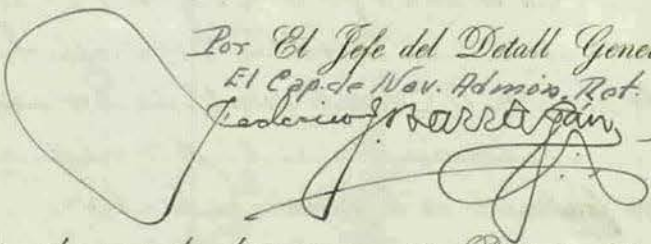 Por El Jefe del Detall Gene
El Cap. de Nav. Admón. Ret.
Federico J. Barragán,